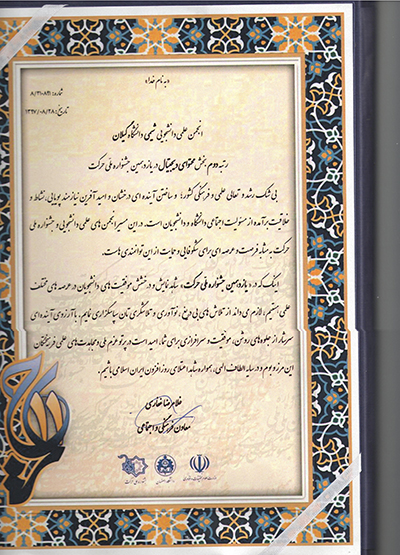 «به نام خدا»
شماره: ۸/۳۱۰۸۲۱
تاریخ: ۱۳۹۷/۰۸/۲۸
انجمن علمی دانشجویی شیمی دانشگاه گیلان
رتبه دوم بخش محتوای دیجیتال در یازدهمین جشنواره ملی حرکت
بی شک رشد و تعالی علمی و فرهنگی کشور؛ و ساختن آینده ای درخشان و امید آفرین نیازمند پویایی، نشاط و
خلاقیت برآمده از مسئولیت اجتماعی دانشگاه و دانشجویان است. در این مسیر انجمن های علمی دانشجویی و جشنواره ملی
حرکت به مثابه فرصت و عرصه ای برای شکوفایی و حمایت از این توانمندی هاست.
اینک که در یازدهمین جشنواره ملی حرکت، شاهد تابش و درخشش موفقیت های دانشجویان در عرصه های مختلف
علمی هستیم، لازم می داند از تلاش های بی دریغ، نوآوری و تلاشگری تان سپاسگزاری نمایم. با آرزوی آینده ای
سرشار از جلوه های روشن، موفقیت و سرافرازی برای شما، امید است در پرتو عزم ملی و مجاهدت های علمی فرهیختگان
این مرز و بوم و در سایه الطاف الهی، همواره شاهد اعتلای روزافزون ایران اسلامی باشیم.
غلامرضا غفاری
معاون فرهنگی و اجتماعی